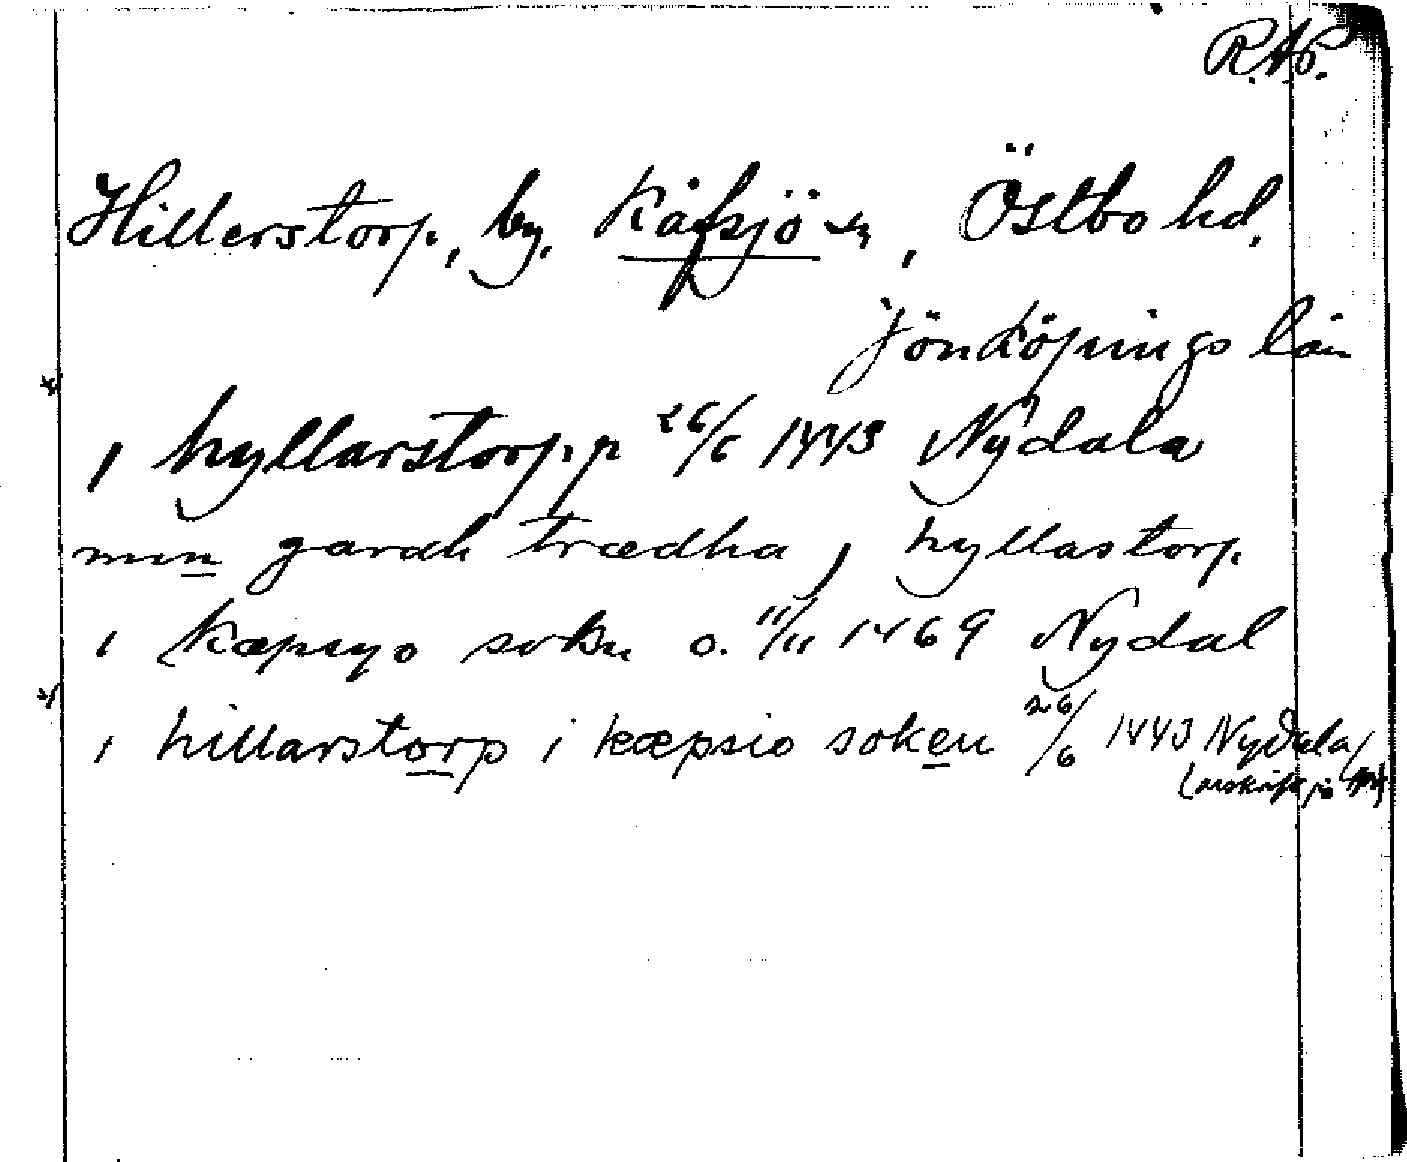 R.A.P.
Hillerstorp, by, Kåfsjö sn, Östbo hd.
Jönköpings län
i hyllarstorpp 26/6 1443 Nydala
min gardh trædha i hyllastorp
i kæpsyo sokn o. 11/11 1469 Nydal
i hillarstorp i kæpsio soken 26/6 1443 Nydala